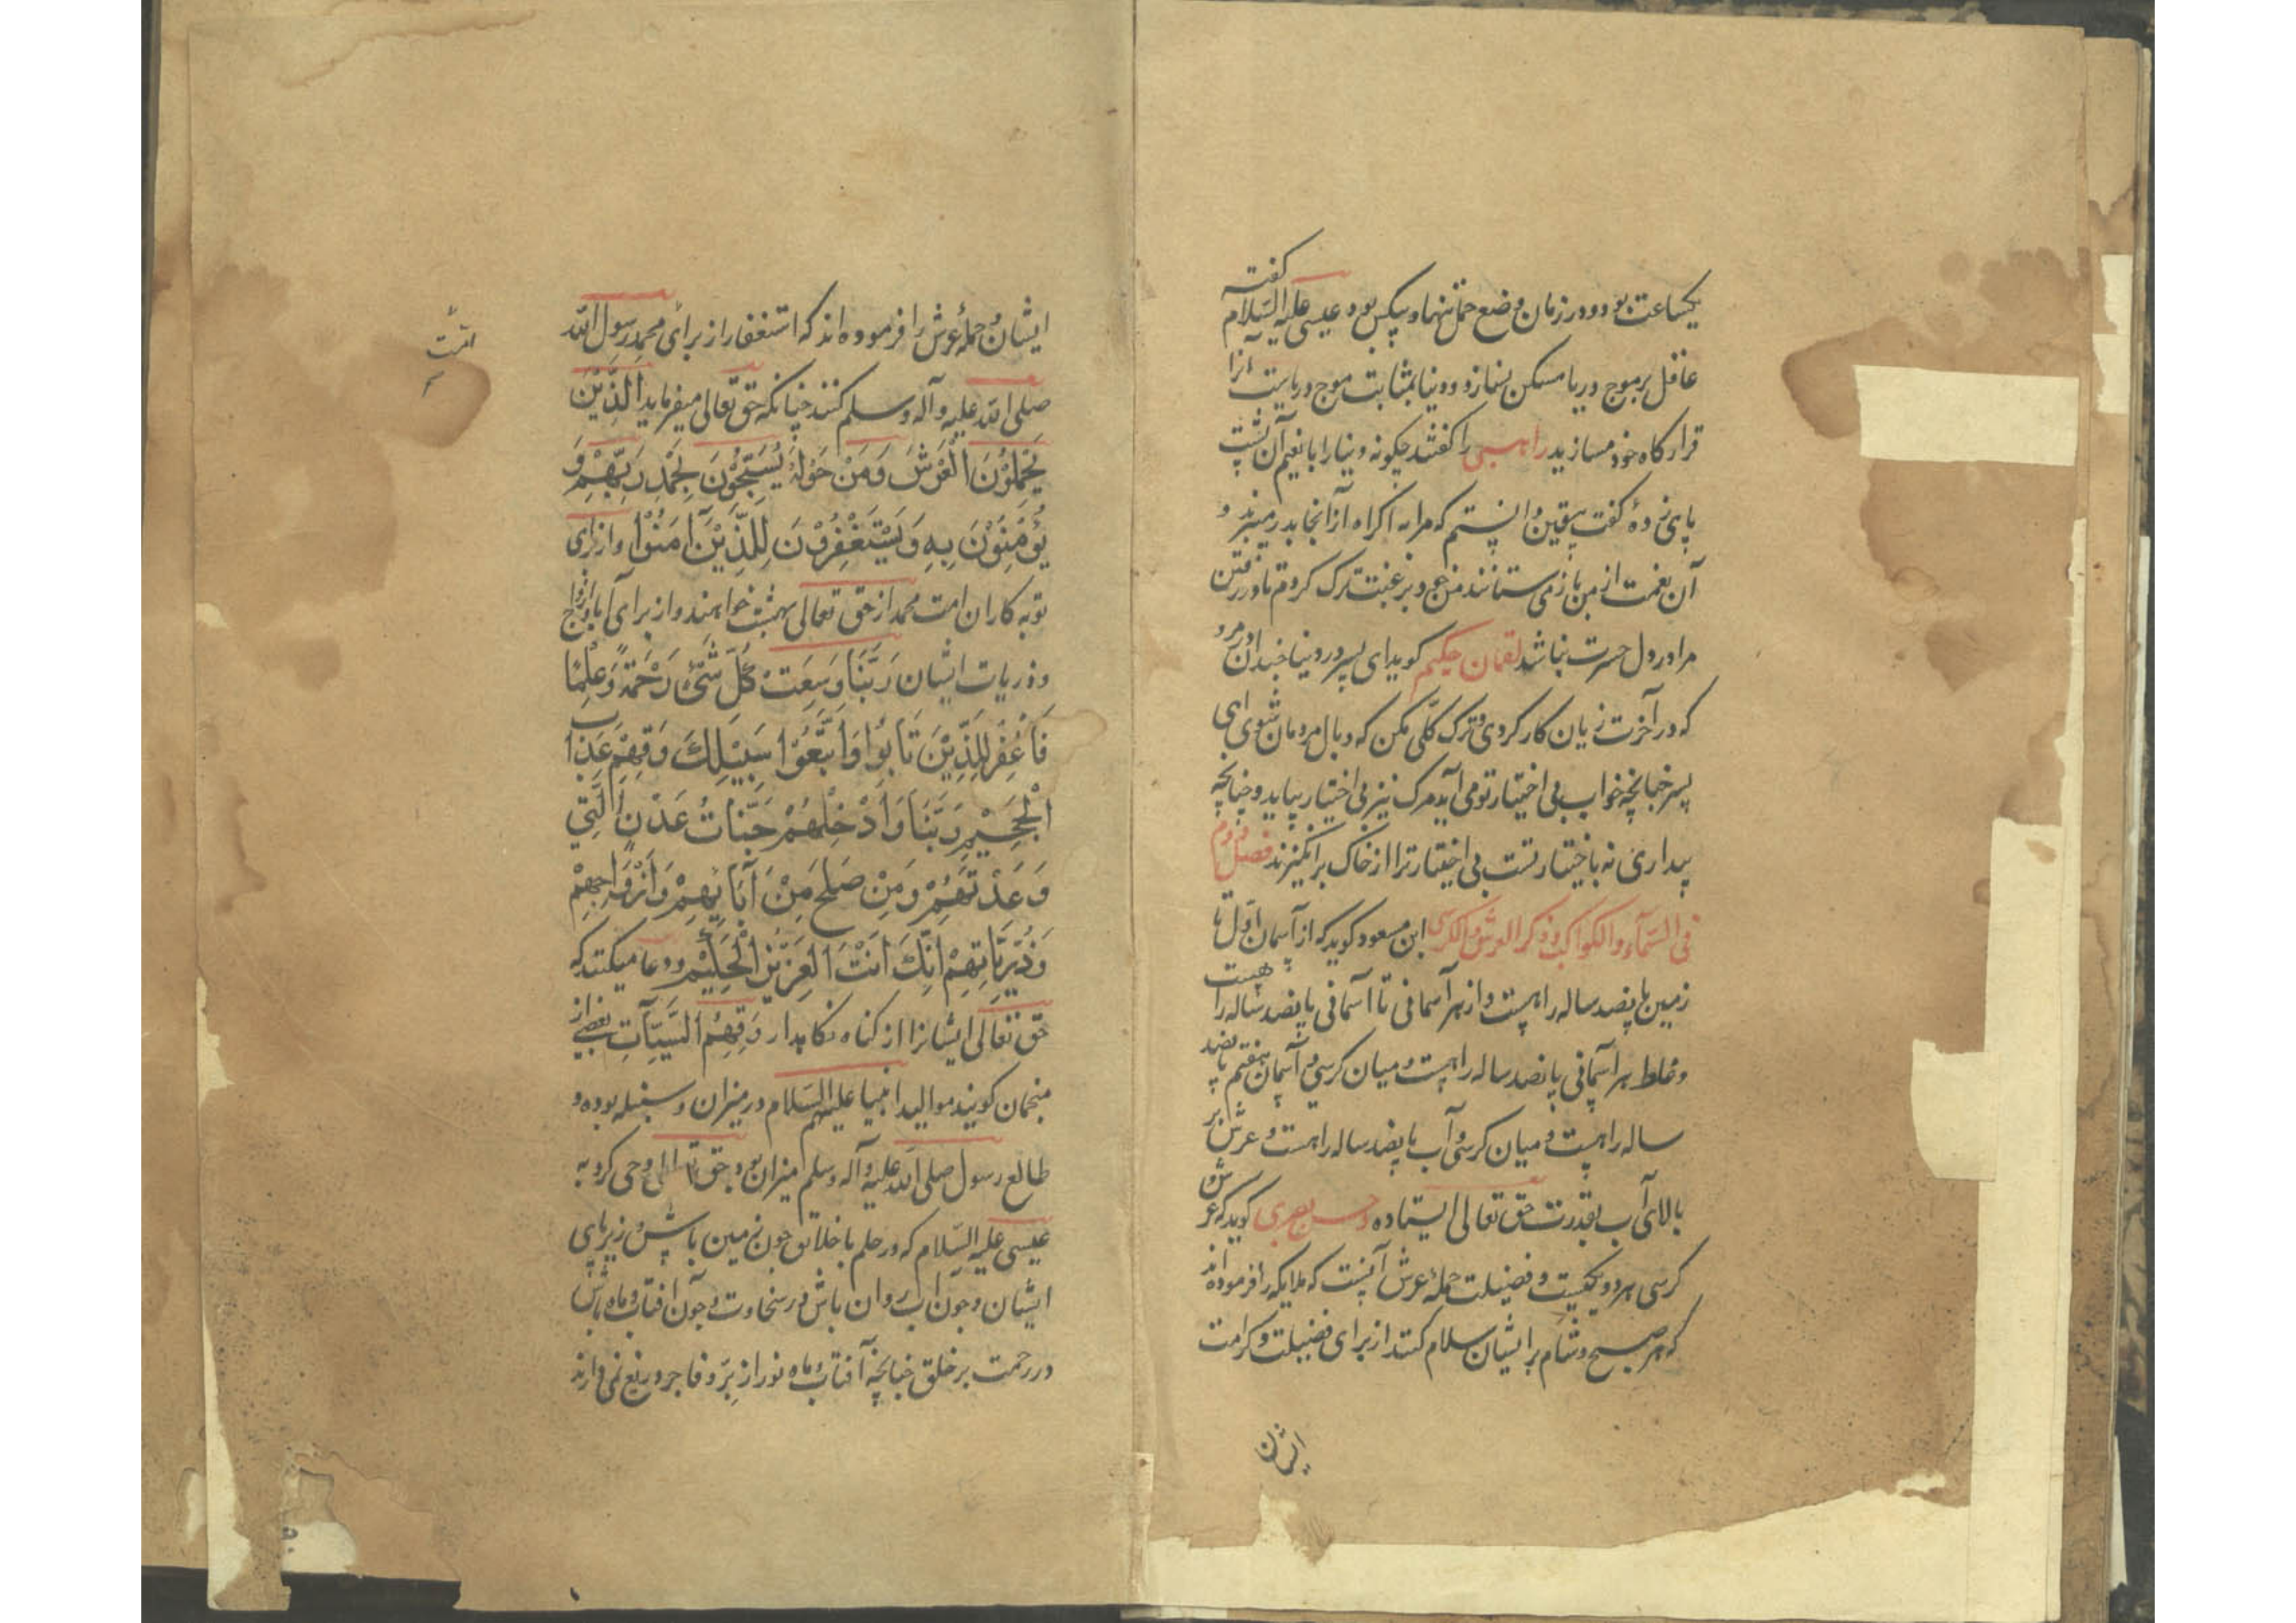 یکساعت بود و در زمان وضع حمل تنها و بیکس بود عیسی علیه السلام گفته
عاقل بر موج دریا مسکن نسازد و دنیا بمثابت موج دریاست آنرا
قرارگاه خود مسازید راهبی را گفتند چگونه دنیا را با نعیم آن پشت
پای زدهٔ گفت بیقین دانستم که مرا به اکراه از آنجا بدر میبرند و
آن نعمت از من باز می ستانند من خود برغبت ترک کردم تا در رفتن
مرا در دل حسرت نباشد لقمان حکیم گوید ای پسر در دنیا چندان مرو
که در آخرت زیان کار گردی و ترک کلی مکن که وبال مردمان شوی ای
پسر چنانچه خواب بی اختیار تو می آید مرگ نیز بی اختیار بیاید و چنانچه
بیداری نه باختیار تست بی اختیار ترا از خاک برانگیزند فصل دوم
فی السمآء والکواکب و ذکر العرش والکرسی ابن مسعود گوید که از آسمان اول تا
زمین پانصد ساله راهست و از هر آسمانی تا آسمانی پانصد ساله راهست
و غلظ هر آسمانی پانصد ساله راهست و میان کرسی و آسمان هفتم پانصد
ساله راهست و میان کرسی و آب پانصد ساله راهست و عرش بر
بالای آب بقدرت حق تعالی ایستاده و حسن بصری گوید که عرش
کرسی هر دو یکیست و فضیلت حملهٔ عرش آنست که ملایکه را فرموده اند
که هر صبح و شام بر ایشان سلام کنند از برای فضیلت و کرامت
ایشان
ایشان و حملهٔ عرش را فرموده اند که استغفار از برای محمد رسول الله
امت
صلی الله علیه وآله وسلم کنند چنانکه حق تعالی میفرماید الَّذِیْنَ
یَحْمِلُوْنَ الْعَرْشَ وَمَنْ حَوْلَهُ یُسَبِّحُوْنَ بِحَمْدِ رَبِّهِمْ وَ
یُؤْمِنُوْنَ بِهِ وَیَسْتَغْفِرُوْنَ لِلَّذِیْنَ آمَنُوْا و از برای
توبه کاران امت محمد از حق تعالی بهشت خواهند و از برای آبا و ازواج
و ذریات ایشان رَبَّنَا وَسِعَتْ کُلَّ شَیْءٍ رَحْمَةً وَعِلْمًا
فَاغْفِرْ لِلَّذِیْنَ تَابُوْا وَاتَّبَعُوْا سَبِیْلِکَ وَقِهِمْ عَذَابَ
الْجَحِیْمِ رَبَّنَا وَأَدْخِلْهُمْ جَنَّاتُ عَدْنٍ الَّتِی
وَعَدْتَهُمْ وَمِنْ صَلَحَ مِنْ آبَائِهِمْ وَأَزْوَاجِهِمْ
وَذُرِّیَّاتِهِمْ إِنَّکَ أَنْتَ الْعَزِیْزُ الْحَکِیْمُ و دعا میکنند که
حق تعالی ایشانرا از گناه نگاهدار وَقِهِمُ السَّیِّآتِ بعضی از
منجمان گویند موالید انبیا علیهم السلام در میزان و سنبله بوده و
طالع رسول صلی الله علیه وآله وسلم میزان بود حق تعالی وحی کرد به
عیسی علیه السلام که در حلم با خلایق چون زمین باش زیر پای
ایشان و چون آب روان باش در سخاوت و چون آفتاب و ماه باش
در رحمت بر خلق چنانچه آفتاب و ماه نور از برّ و فاجر دریغ نمی دارند